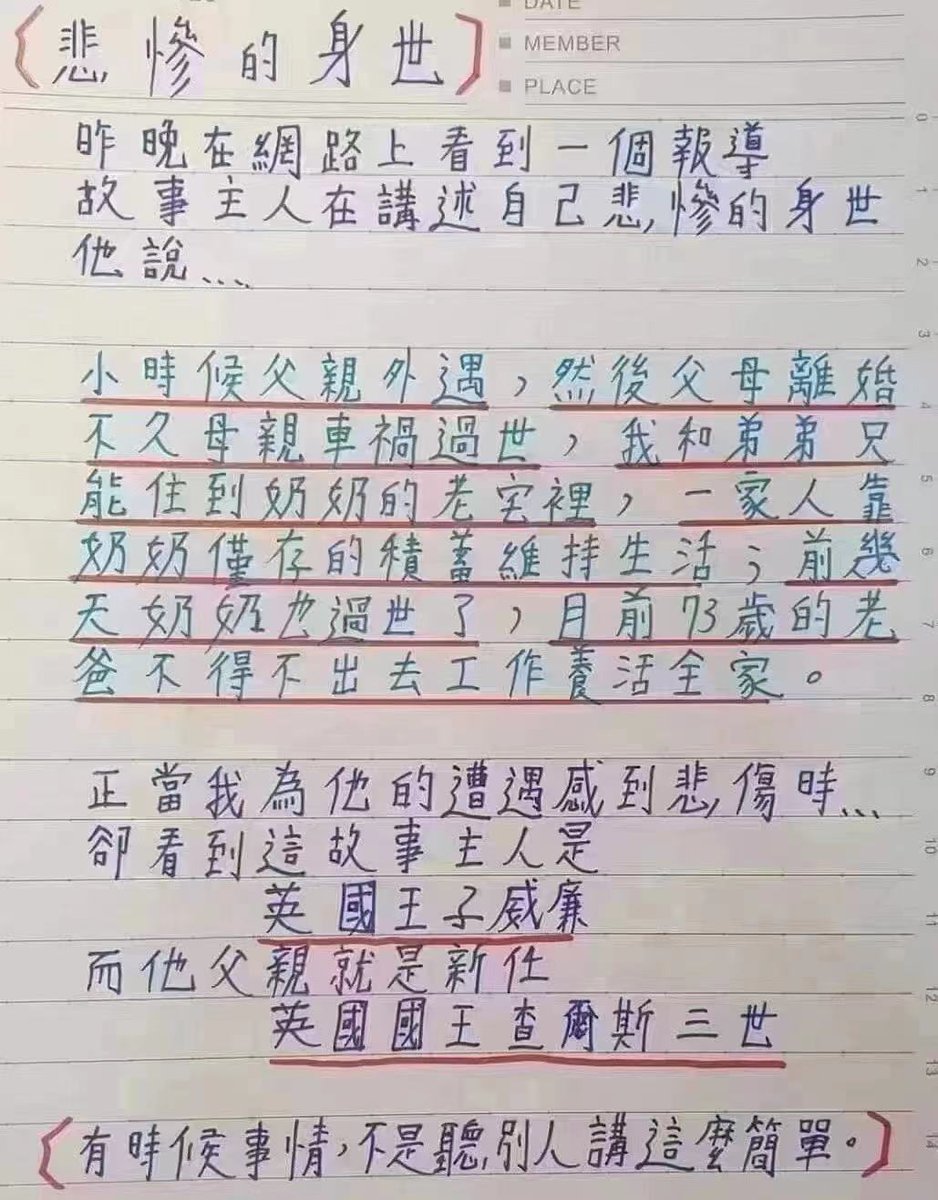 DATE
{悲慘的身世}
MEMBER
PLACE
昨晚在網路上看到一個報導
故事主人在講述自己悲慘的身世
他說....
小時候父親外遇，然後父母離婚
不久母親車禍過世，我和弟弟只
能住到奶奶的老宅裡，一家人靠
奶奶僅存的積蓄維持生活；前幾
天奶奶也過世了，目前73歲的老
爸不得不出去工作養活全家。
正當我為他的遭遇感到悲傷時...
卻看到這故事主人是
英國王子威廉
而他父親就是新任
英國國王查爾斯三世
{有時候事情，不是聽別人講這麼簡單。}
0
1
2
3
4
5
6
7
8
9
10
11
12
13
14